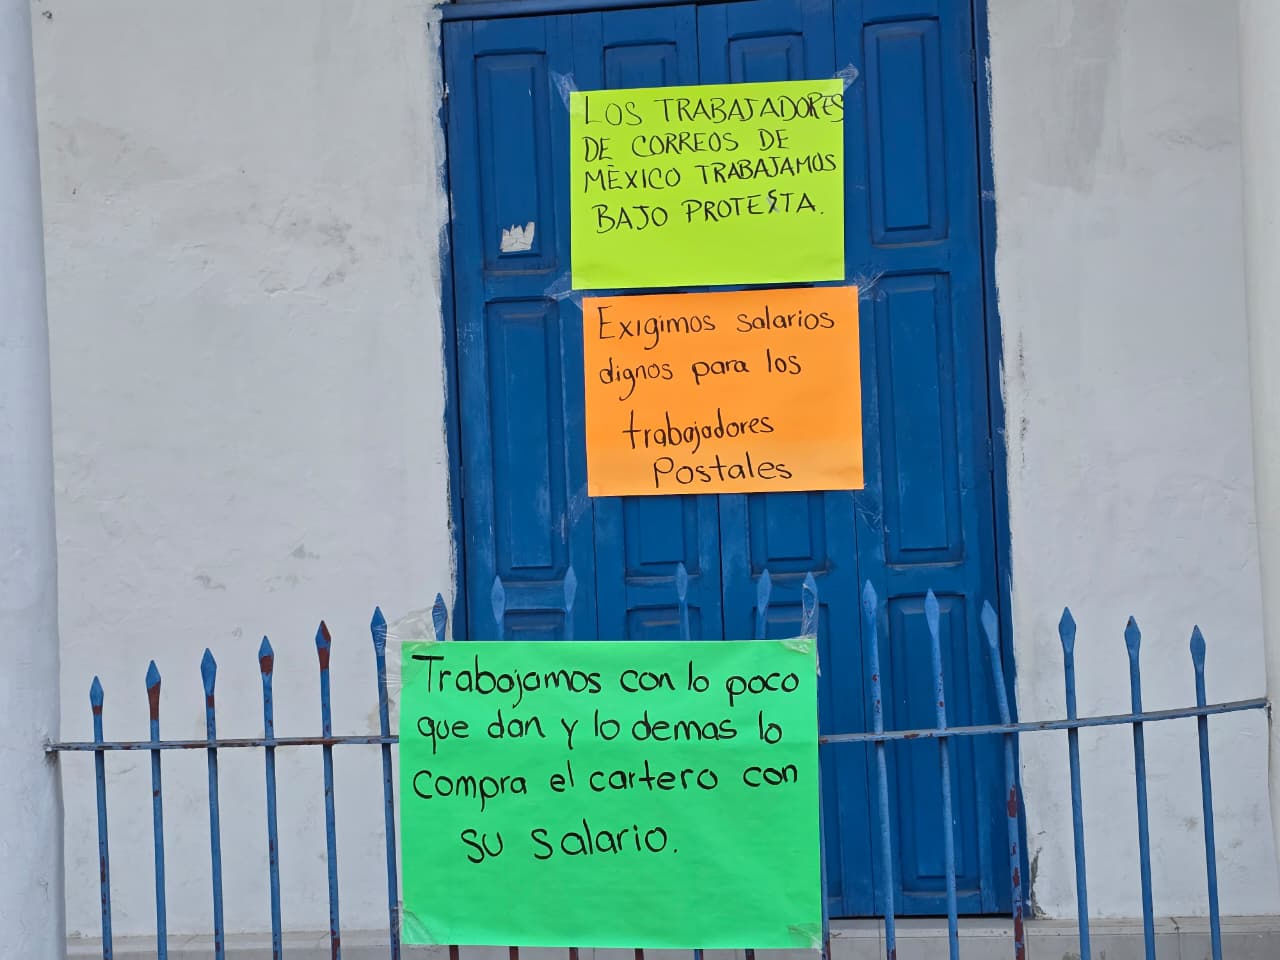 LOS TRABAJADORES
DE CORREOS DE
MÈXICO TRABAJAMOS
BAJO PROTESTA.
Exigimos salarios
dignos para los
trabajadores
Postales
Trabajamos con lo poco
que dan y lo demas lo
compra el cartero con
su salario.